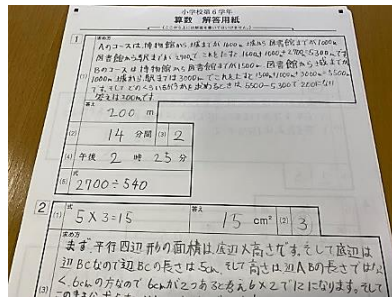 小学校第6学年
算数 解答用紙
1
求め方
Aのコースは、博物館から城までが1600m、城から図書館までが1000m
図書館から駅までが2700mで これをたすと1600+1000+2700=5300mです
Bのコースは博物館から図書館までが1500m 図書館から城まで
1000m、城から駅までは3000mでこれをたすと1500+1000+3000=5500m
です。そしてどのくらい
を求めるときは 5500-5300で200になり
答えは200mです
答え
200 m
(2) 14 分間 (3) 2
(4) 午後 2 時 25 分
(5) 式 2700÷540
2
(1) 式 5×3=15 答え 15 cm² (2) 3
求め方
まず、平行四辺形の面積は底辺×高さです。そして底辺は
辺BCなので辺BCの長さは5cm、そして高さは辺ABの長さではな
く、6cmの方なので6cmが2つあると考え6×2で12になります。そして
(3)